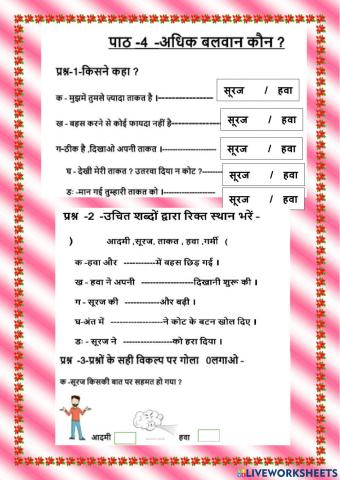 पाठ -4 -अधिक बलवान कौन ?
प्रश्न-1-किसने कहा ?
क - मुझमें तुमसे ज़्यादा ताकत है ।---------------- सूरज / हवा
ख - बहस करने से कोई फायदा नहीं है---------------- सूरज / हवा
ग-ठीक है ,दिखाओ अपनी ताकत ।---------------- सूरज / हवा
घ - देखी मेरी ताकत ? उतरवा दिया न कोट ?-------- सूरज / हवा
डः -मान गई तुम्हारी ताकत को ।---------------- सूरज / हवा
प्रश्न -2 -उचित शब्दों द्वारा रिक्त स्थान भरें -
) आदमी ,सूरज, ताकत , हवा ,गर्मी (
क -हवा और -----------में बहस छिड़ गई ।
ख - हवा ने अपनी -----------------दिखानी शुरू की ।
ग - सूरज की ------------और बढ़ी ।
घ-अंत में -----------------ने कोट के बटन खोल दिए ।
डः - सूरज ने ----------------को हरा दिया ।
प्रश्न -3-प्रश्नों के सही विकल्प पर गोला 0लगाओ -
क -सूरज किसकी बात पर सहमत हो गया ?
आदमी हवा
LIVEWORKSHEETS